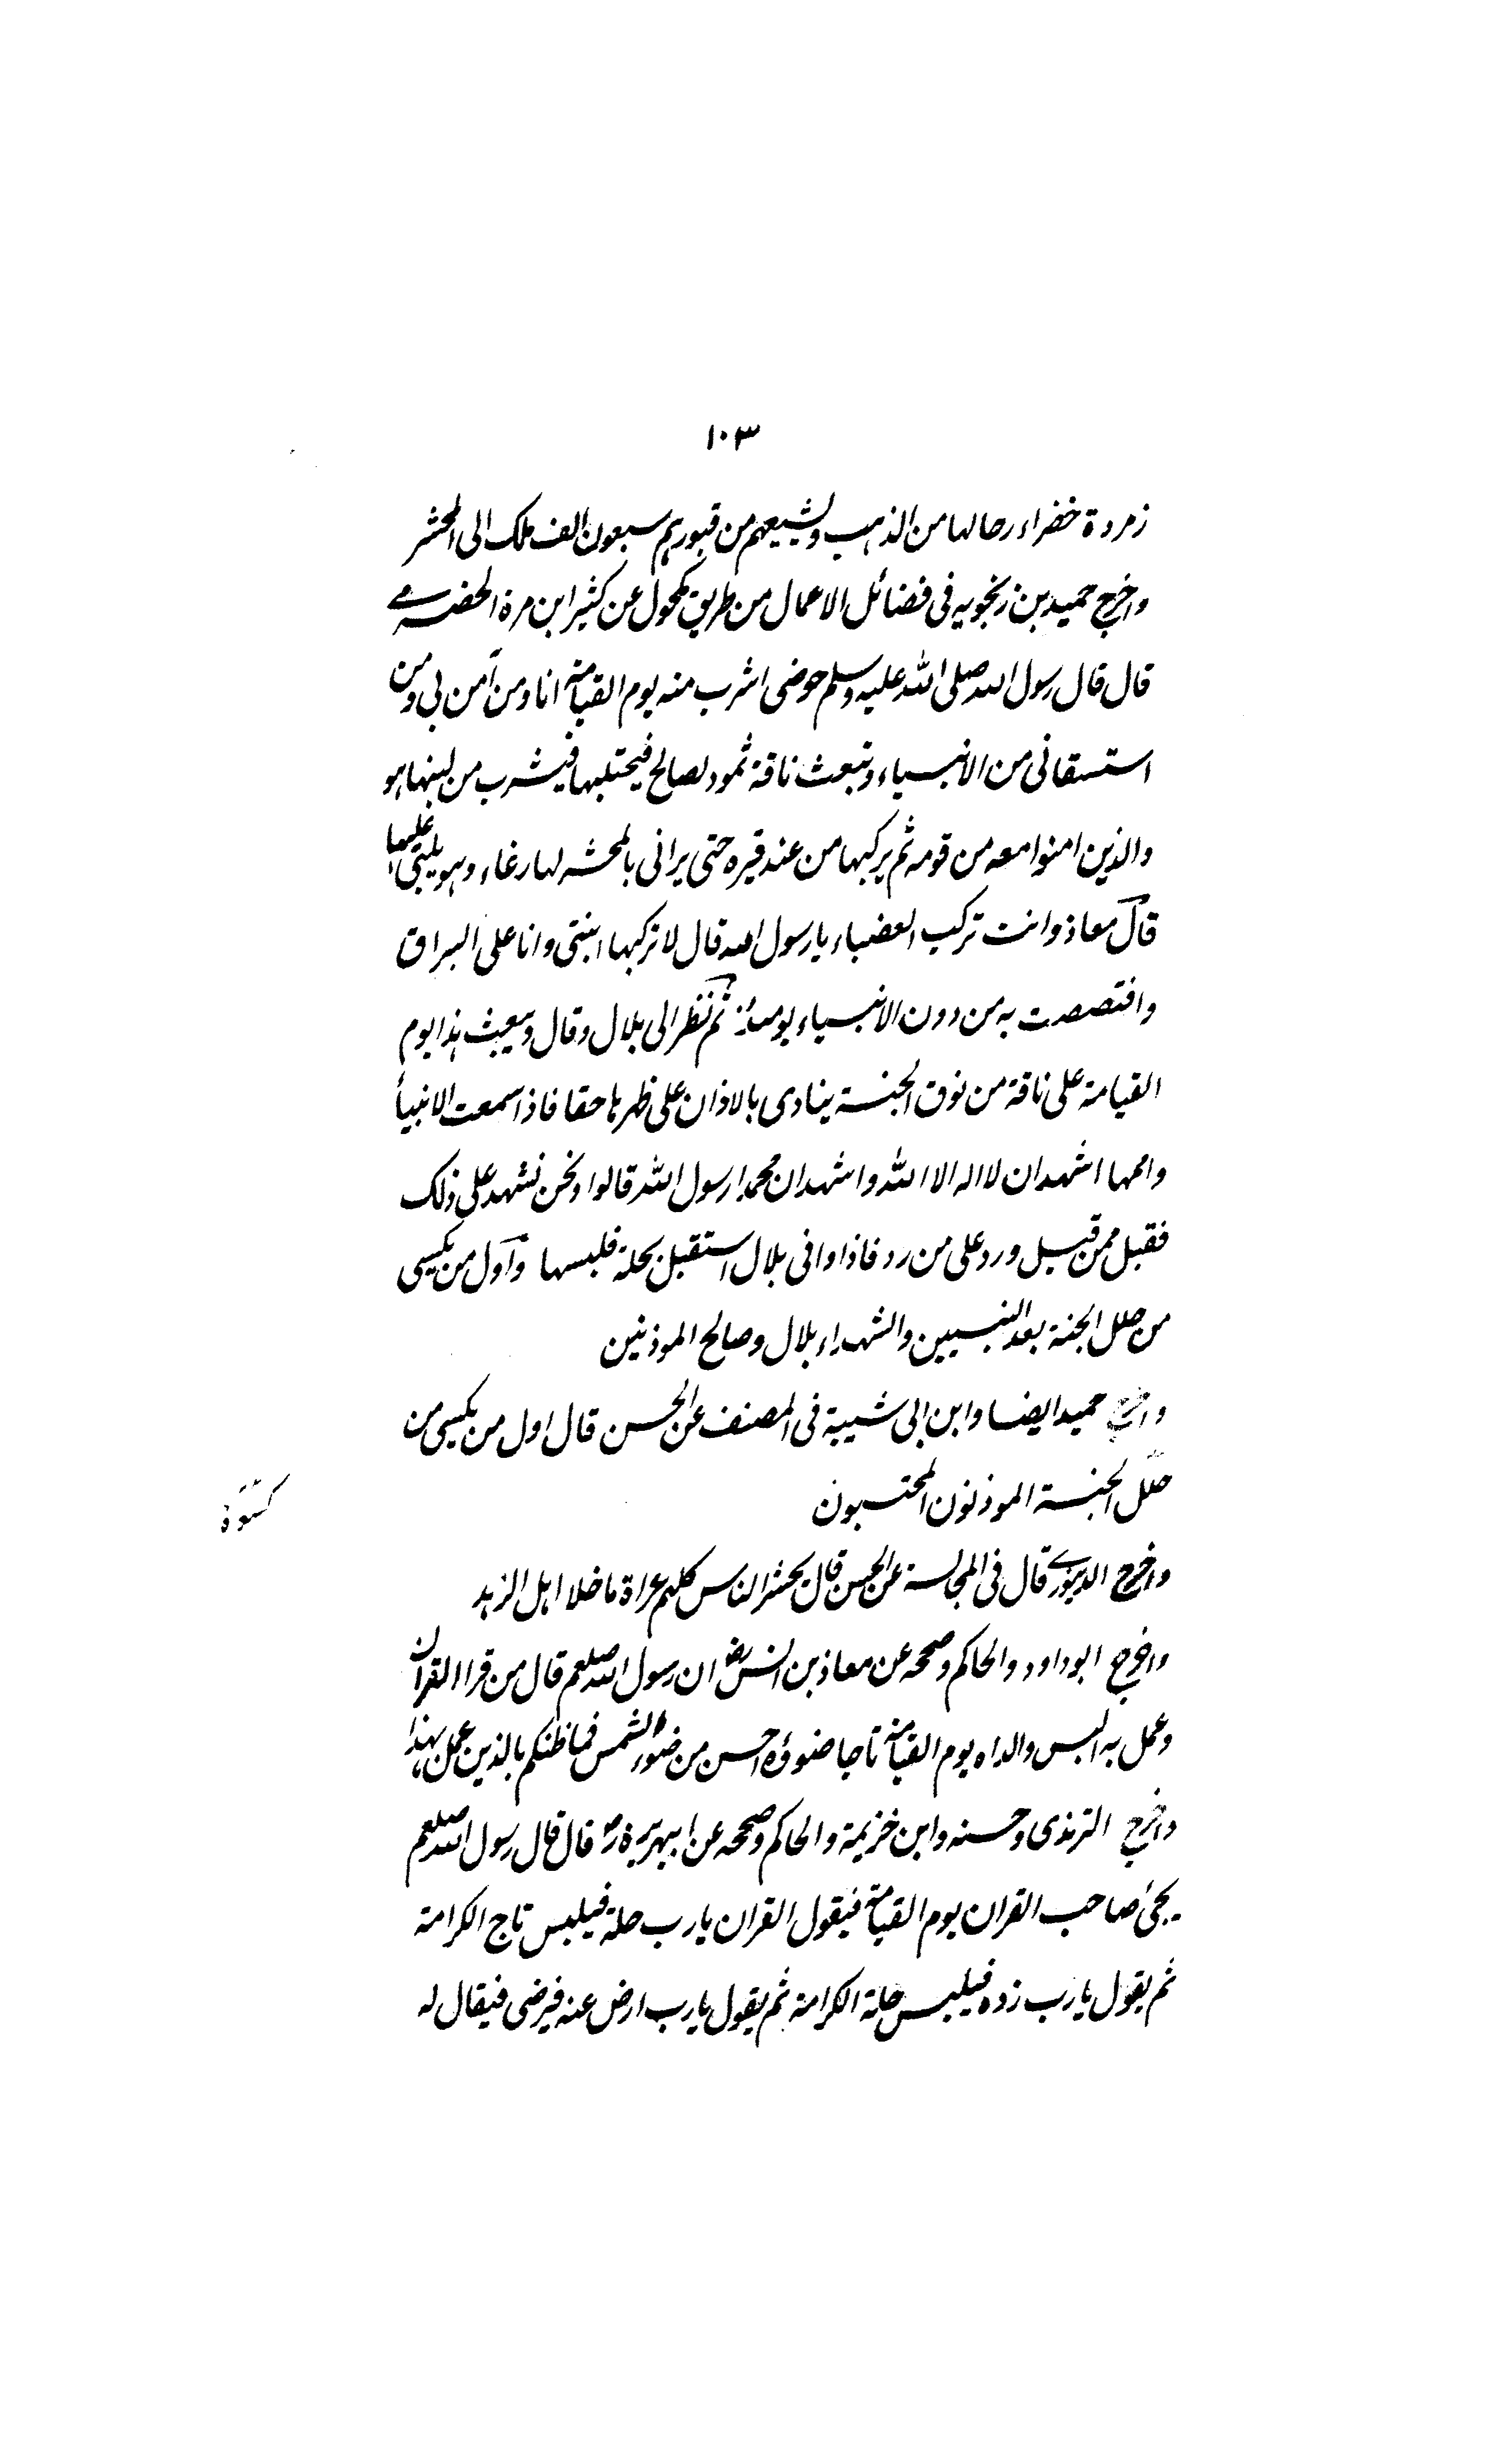 ١٠٣
زمردة خضراء رحالها من الذهب ويشيعهم من قبورهم سبعون الف ملك الى المحشر
واخرج حميد بن زنجويه فى فضائل الاعمال من طريق مكحول عن كثير ابن مرة الحضرمي
قال قال رسول الله صلى الله عليه وسلم حوضى اشرب منه يوم القيامة انا ومن آمن بى ومن
استسقانى من الانبياء وتبعث ناقة ثمود لصالح فيحتلبها فيشرب من لبنها هو
والذين امنوا معه من قومه ثم يركبها من عند قبره حتى يرانى بالمحشر لها رغاء وهو يلبى عليها
قال معاذ وانت تركب العضباء يا رسول الله قال لا تركبها ابنتى وانا على البراق
واختصصت به من دون الانبياء يومئذ ثم نظر الى بلال وقال ويبعث هذا يوم
القيامة على ناقة من نوق الجنة ينادى بالاذان على ظهرها حقا فاذا سمعت الانبيأ
واممها اشهد ان لا اله الا الله واشهد ان محمدا رسول الله قالوا ونحن نشهد على ذلك
فقبل ممن قبل ورد على من رد فاذا وافى بلال استقبل بحلة فلبسها واول من يكسى
من حلل الجنة بعد النبيين والشهداء بلال وصالح الموذنين
واخرج حميد ايضا وابن ابى شيبة فى المصنف عن الحسن قال اول من يكسى من
حلل الجنة الموذنون المحتسبون
واخرج الدينورى قال فى المجالسة عن الحسن قال يحشر الناس كلهم عراة ما خلا اهل الزهد
واخرج ابو داود والحاكم وصححه عن معاذ بن انس رض ان رسول الله صلعم قال من قرا القران
وعمل به البس والداه يوم القيامة تاجا ضوؤه احسن من ضوء الشمس فما ظنكم بالذين عمل بهذا
واخرج الترمذى وحسنه وابن خزيمة والحاكم وصححه عن ابيهريرة رض قال قال رسول الله صلعم
يجئ صاحب القران يوم القيامة فيقول القران يارب حلة فيلبس تاج الكرامة
ثم يقول يارب زده فيلبس حلة الكرامة ثم يقول يارب ارض عنه فيرضى فيقال له